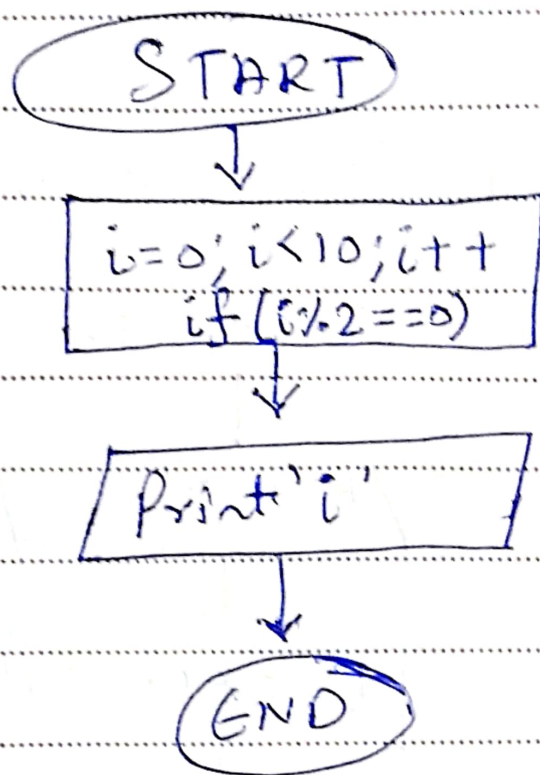 START
i=0; i<10; i++
if (i%2==0)
Print 'i'
END